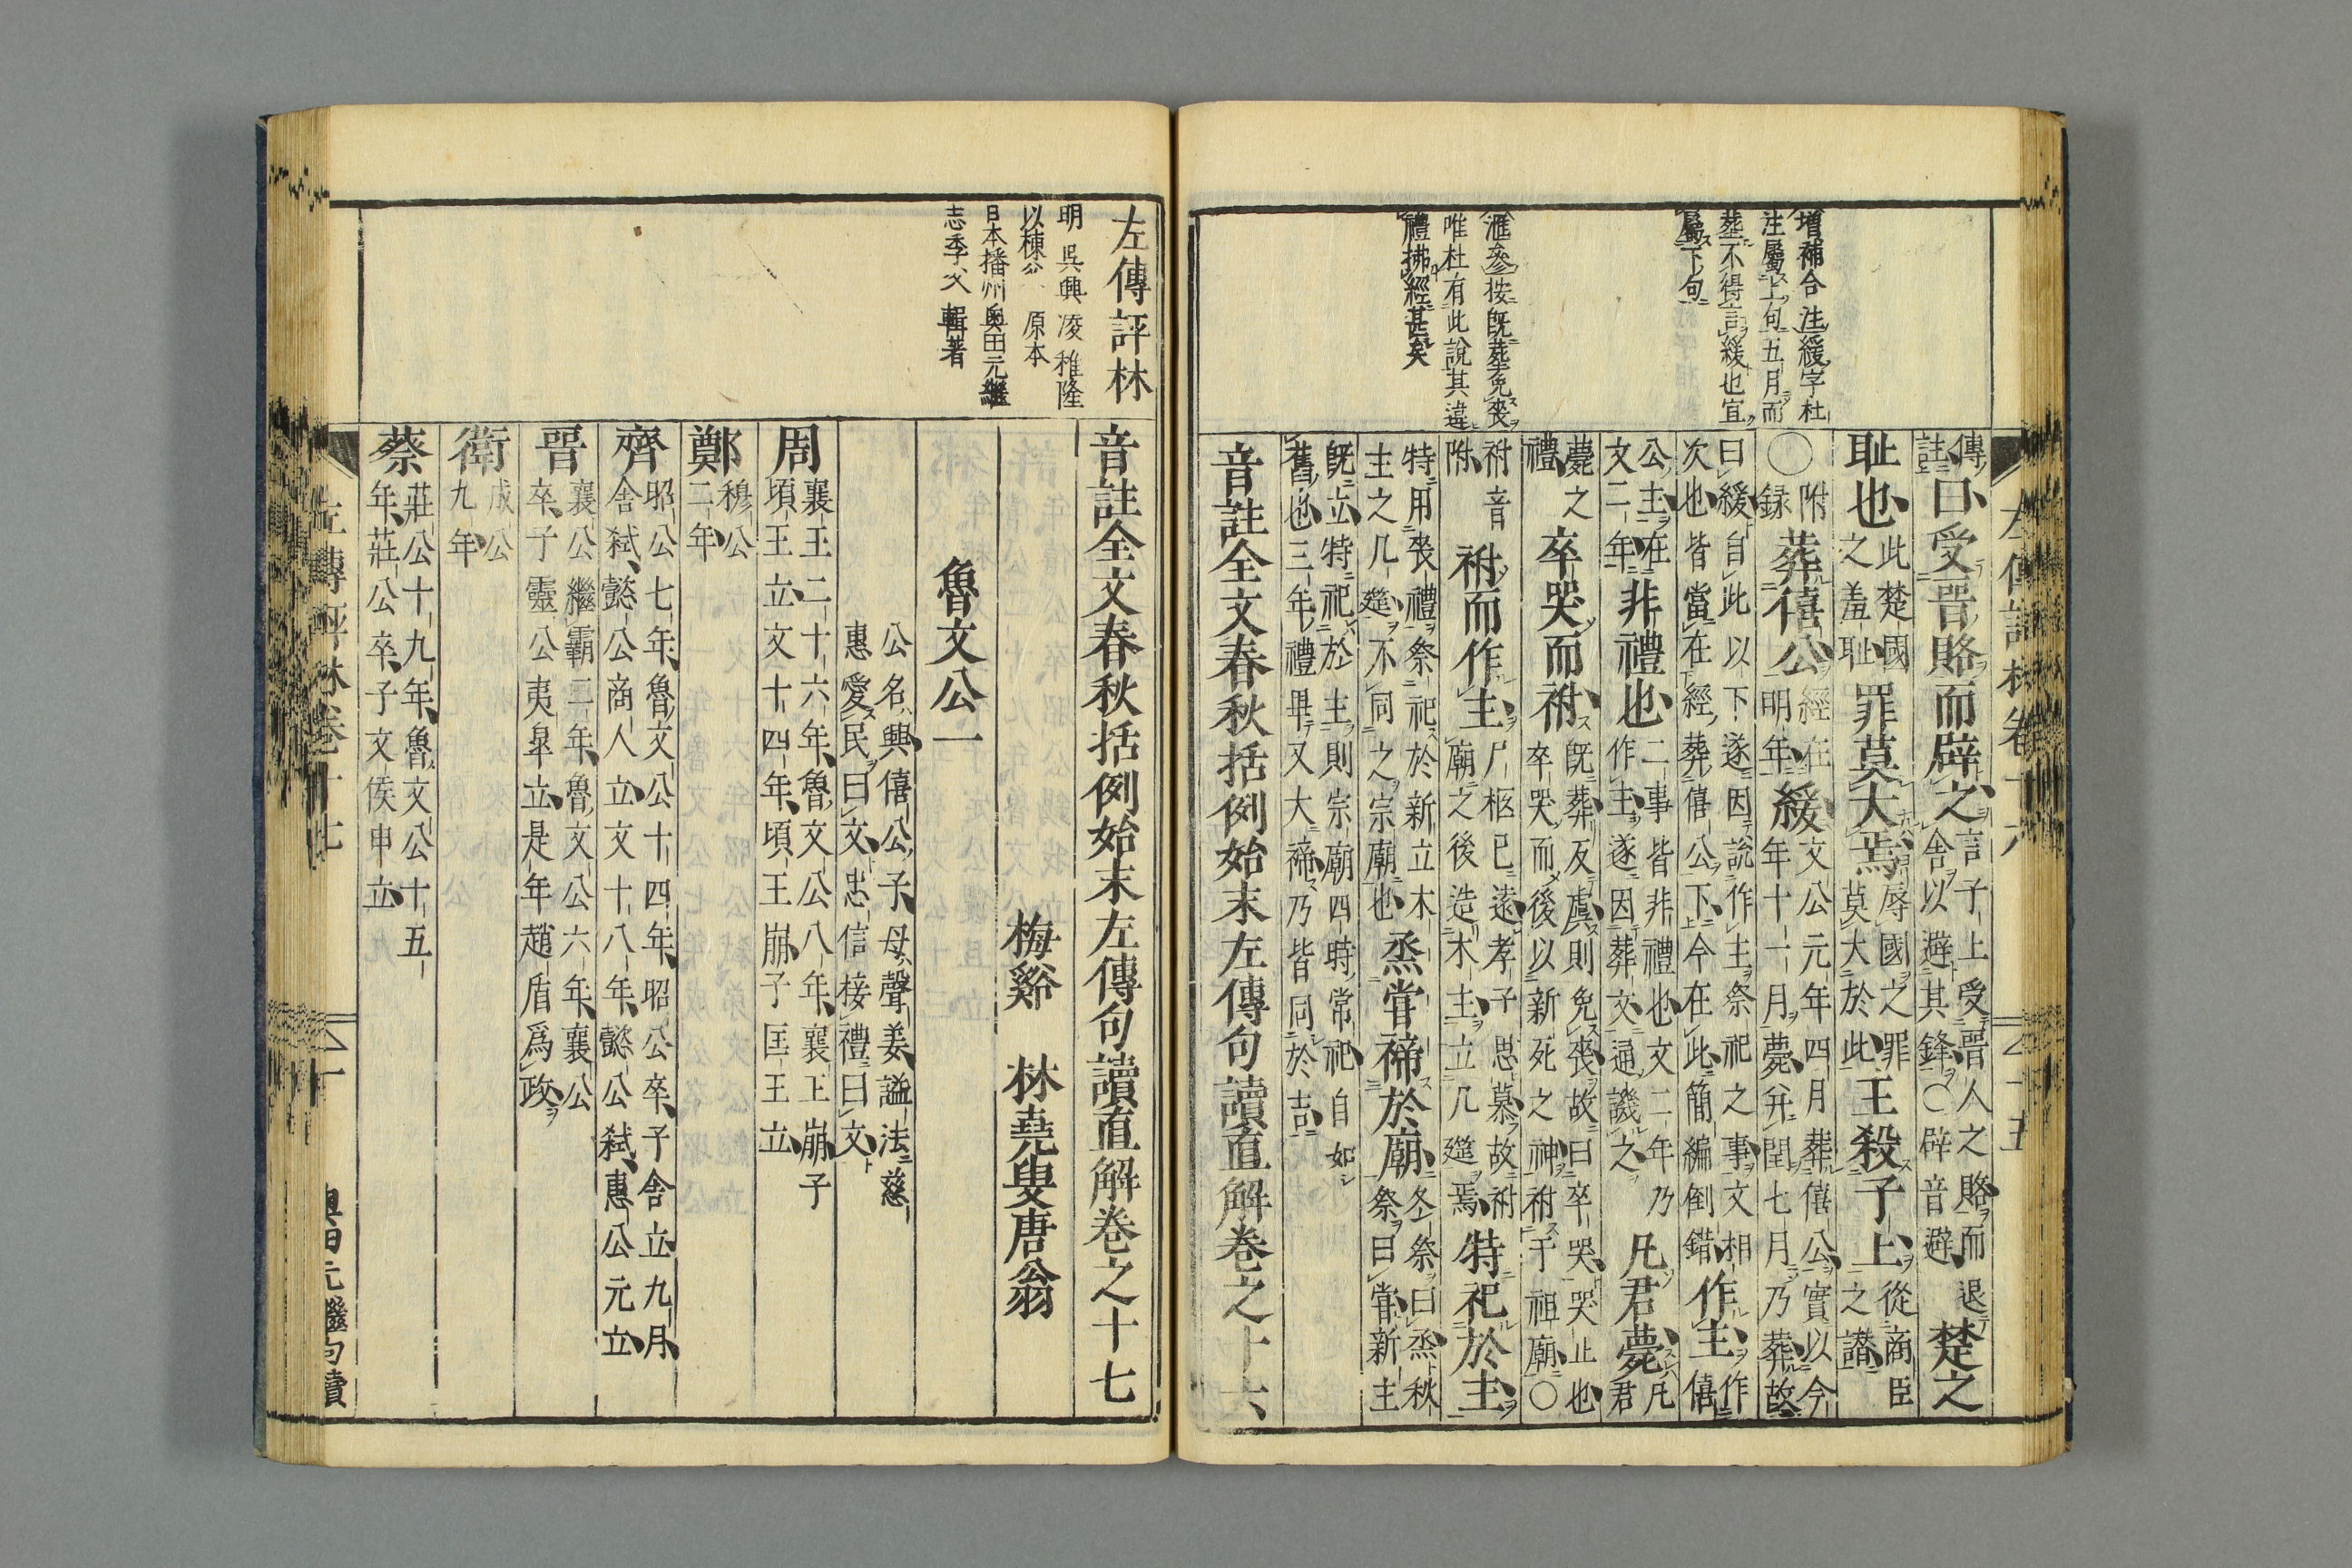 増補合注緩字杜
注屬上句五月而
葬不得言緩也宜
屬下句
滙參按既葬免喪
唯杜有此說其違
禮拂經甚矣
左傳評林卷十六 十五
傳註曰受晉賂而辟之言子上受晉人之賂而退舍以避其鋒○辟音避楚之
耻也此楚國之羞耻罪莫大焉辱國之罪莫大於此王殺子上從商臣之譖
○附録葬僖公經在明年緩文公元年四月葬僖公實以今年十一月薨并閏七月乃葬故
曰緩自此以下遂因說作主祭祀之事文相次也皆當在經葬僖公下今在此簡編倒錯作主作僖
公主在文二年非禮也二事皆非禮也文二年乃作主遂因葬文通譏之凡君薨凡君
薨之禮卒哭而祔既葬反虞則免喪故曰卒哭哭止也卒哭而後以新死之神祔于祖廟○
祔音附祔而作主尸柩已遠孝子思慕故祔廟之後造木主立几筵焉特祀於主
特用喪禮祭祀於新立木主之几筵不同之宗廟也烝嘗禘於廟冬祭曰烝秋祭曰嘗新主
既立特祀於主則宗廟四時常祀自如舊也三年禮畢又大禘乃皆同於吉
音註全文春秋括例始末左傳句讀直解卷之十六
左傳評林
明 吳興 凌稚隆
以棟父 原本
日本播州 奥田元繼
志季父 輯著
音註全文春秋括例始末左傳句讀直解卷之十七
梅谿 林堯叟唐翁
魯文公一
公名興僖公子母聲姜謚法慈惠愛民曰文忠信接禮曰文
周襄王二十六年魯文公八年襄王崩子頃王立文十四年頃王崩子匡王立
鄭穆公二年
齊昭公七年魯文公十四年昭公卒子舍立九月舍弑懿公商人立文十八年懿公弑惠公元立
晉襄公繼霸二年魯文公六年襄公卒子靈公夷皐立是年趙盾爲政
衛成公九年
蔡莊公十九年魯文公十五年莊公卒子文侯申立
左傳評林卷十七 一 奥田元繼句讀